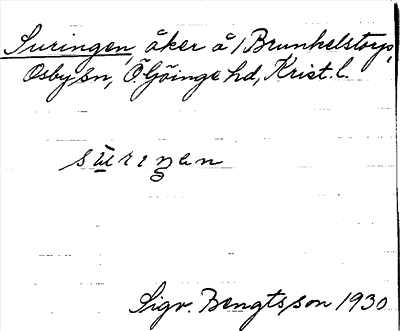 Suringen, åker å 1 Brunkelstorp,
Osby sn, Ö. Göinge hd, Krist. l.
sᵫriŋən
Sigv. Bengtsson 1930